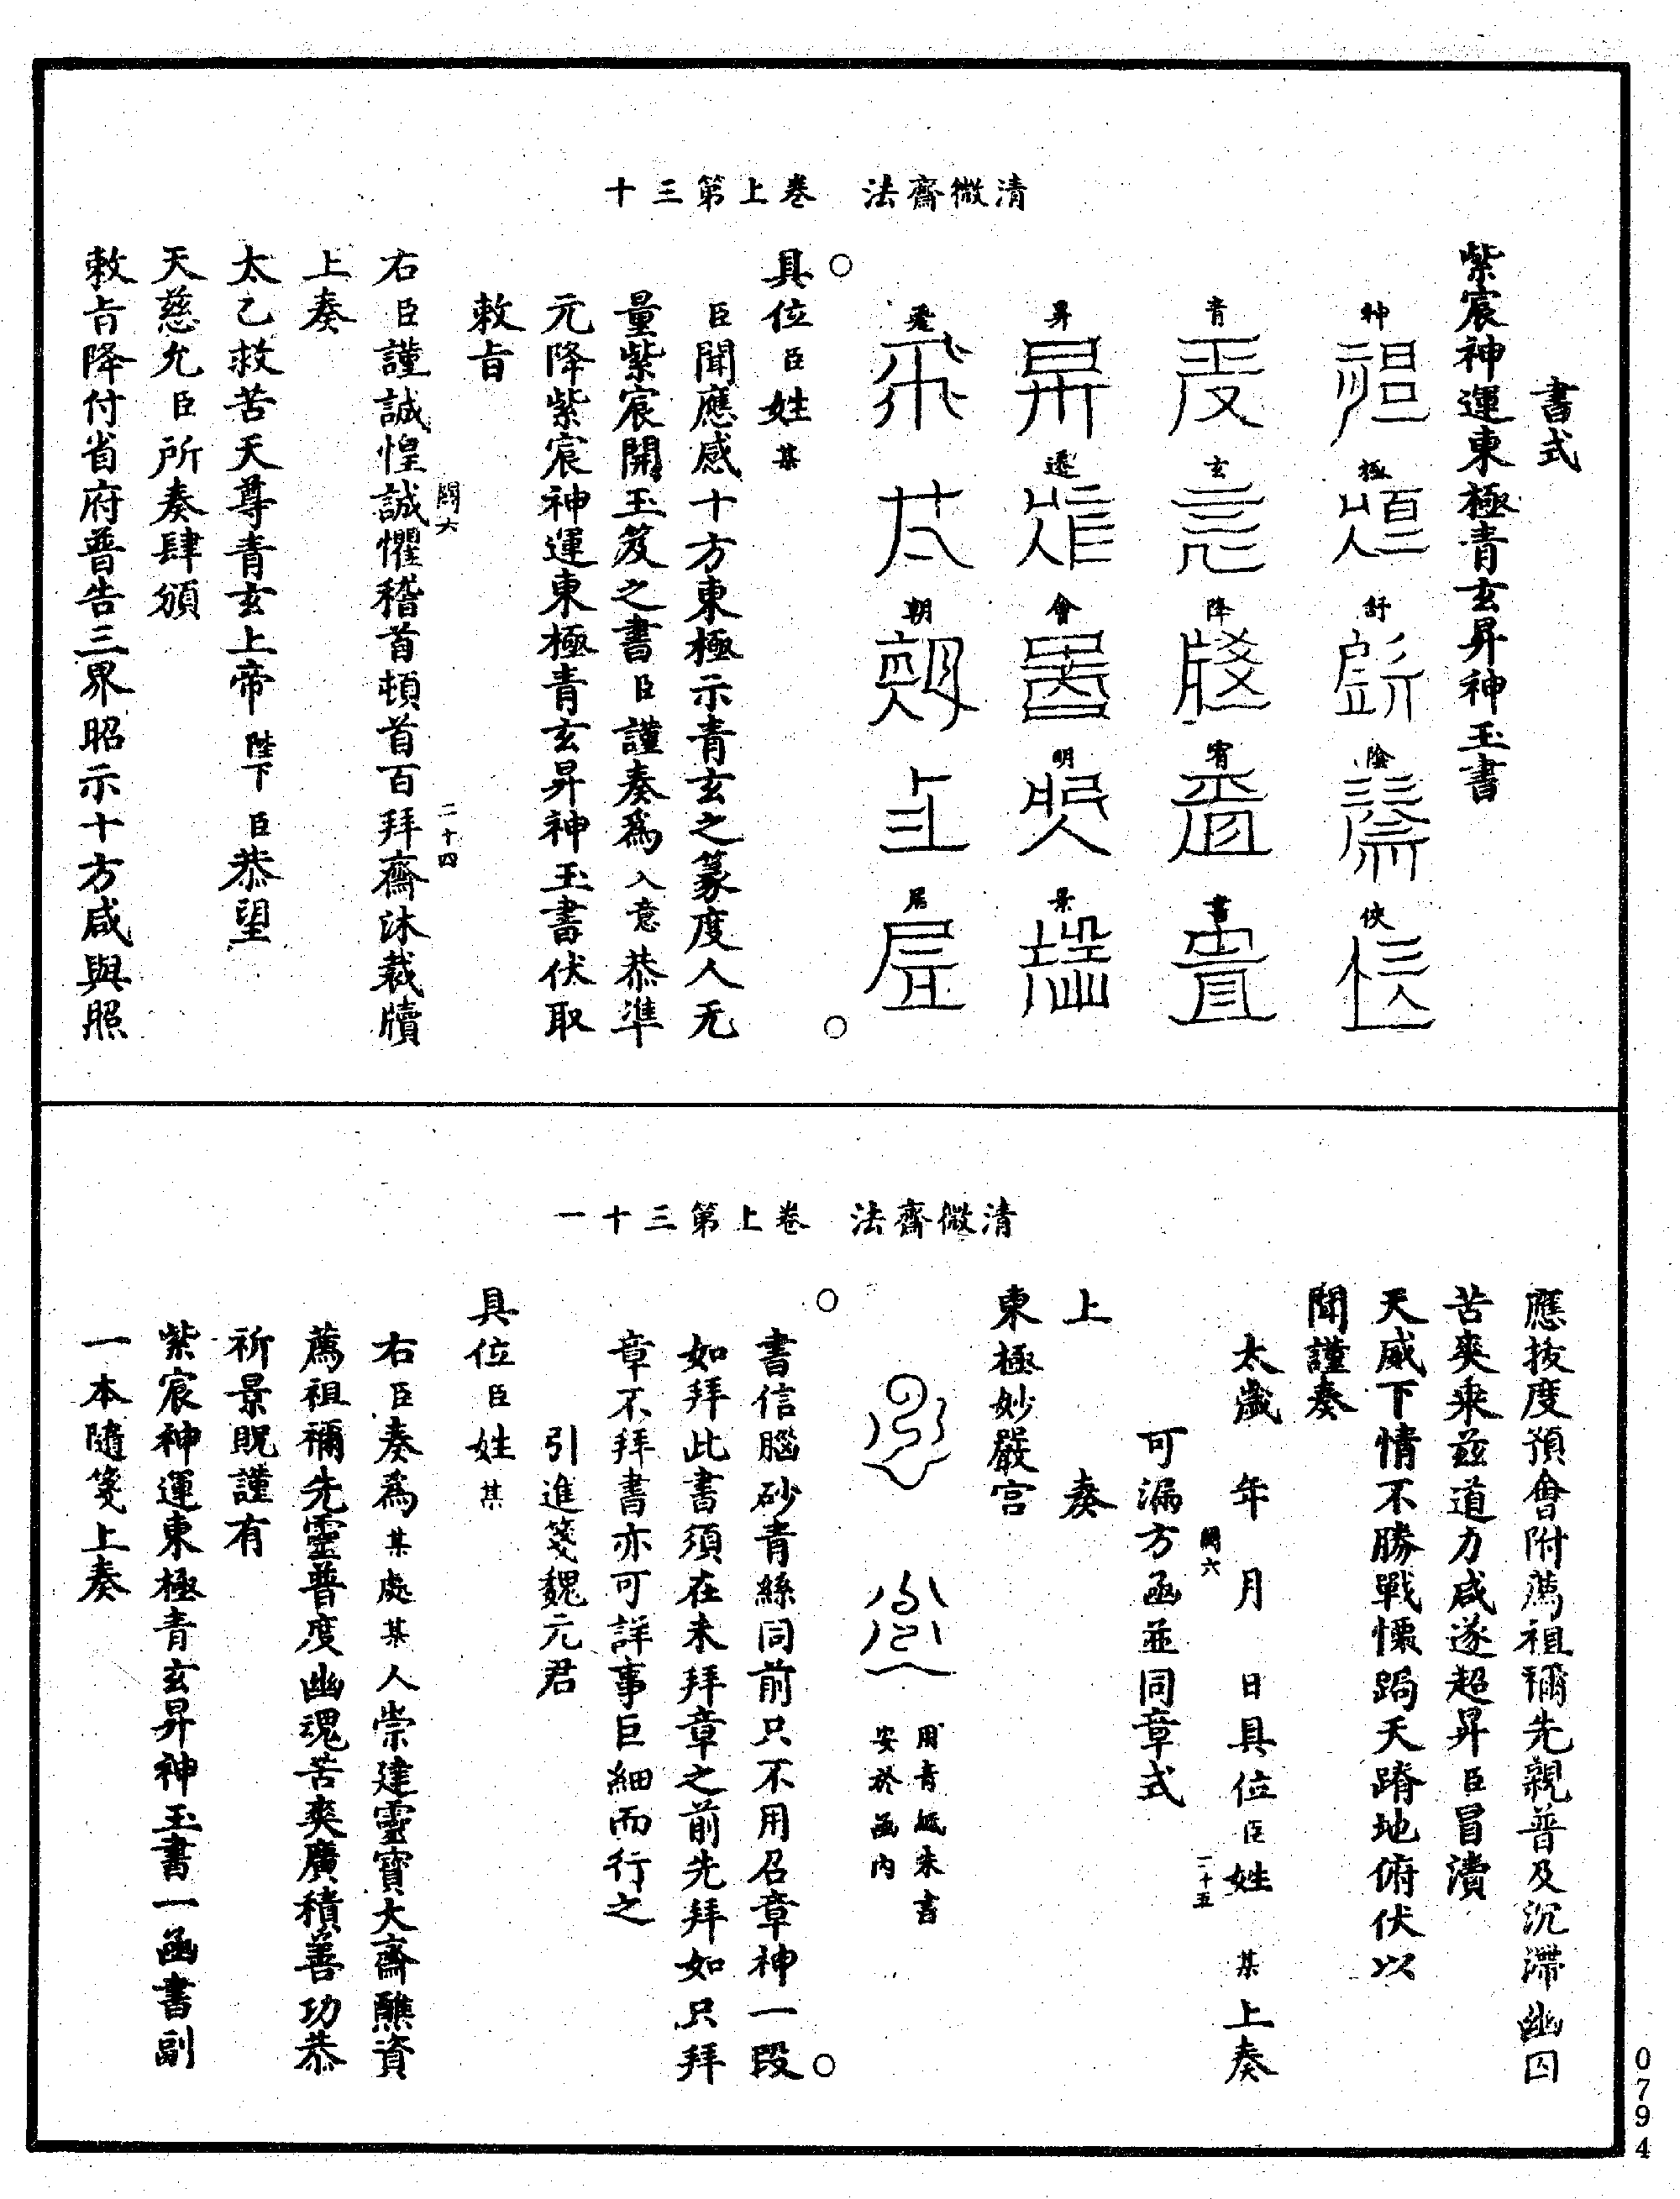 清微齋法　卷上第三十
書式
紫宸神運東極青玄昇神玉書
神　極　舒　陰　俠
青　玄　降　宥　書
昇　遷　會　明　景
飛　朝　居
○　○
具位臣姓某
臣聞應感十方東極示青玄之篆度人无
量紫宸開玉笈之書臣謹奏爲入意恭準
元降紫宸神運東極青玄昇神玉書伏取
敕旨
闕六　二十四
右臣謹誠惶誠懼稽首頓首百拜齋沐裁牘
上奏
太乙救苦天尊青玄上帝陛下臣恭望
天慈允臣所奏肆頒
敕旨降付省府普告三界昭示十方咸與照
清微齋法　卷上第三十一
應拔度預會附薦祖禰先親普及沉滯幽囚
苦爽乘茲道力咸遂超昇臣冒瀆
天威下情不勝戰慄跼天蹐地俯伏以
聞謹奏
太歲　年　月　日具位臣姓　某上奏
闕六　二十五
可漏方函並同章式
上　　奏
東極妙嚴宮
用青紙朱書
安於函內
○　○
書信腦砂青絲同前只不用召章神一段
如拜此書須在未拜章之前先拜如只拜
章不拜書亦可詳事巨細而行之
引進箋魏元君
具位臣姓某
右臣奏爲某處某人崇建靈寶大齋醮資
薦祖禰先靈普度幽魂苦爽廣積善功恭
祈景貺謹有
紫宸神運東極青玄昇神玉書一函書副
一本隨箋上奏
0794